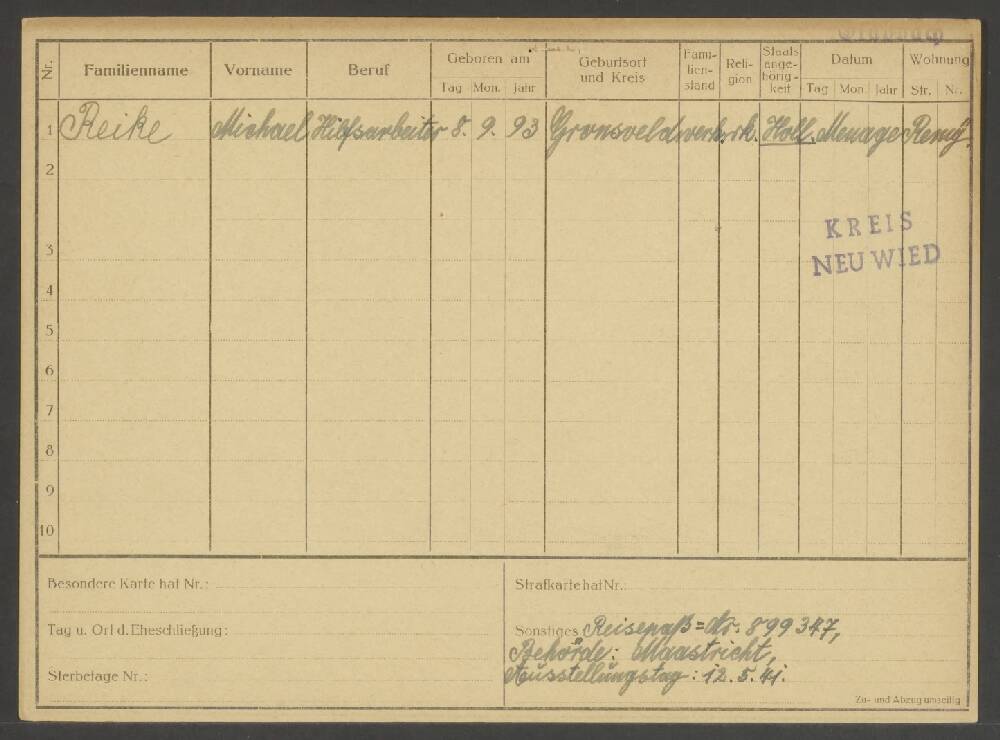 Nr. Familienname Vorname Beruf Geboren am Tag Mon. Jahr Geburtsort und Kreis Fami-lien-stand Reli-gion Staats ange-hörig-keit Datum Tag Mon. Jahr Wohnung Str. Nr.
1 Reike Michael Hilfsarbeiter 8. 9. 93 Gronsveld verh. rk. Holl. Menage Remy.
2
KREIS
NEUWIED
3
4
5
6
7
8
9
10
Besondere Karte hat Nr.:
Tag u. Ort d. Eheschließung:
Sterbetage Nr.:
Strafkarte hat Nr.:
Sonstiges Reisepaß=Nr. 899347,
Behörde: Maastricht,
Ausstellungstag: 12. 5. 41.
Zu- und Abzug umseitig